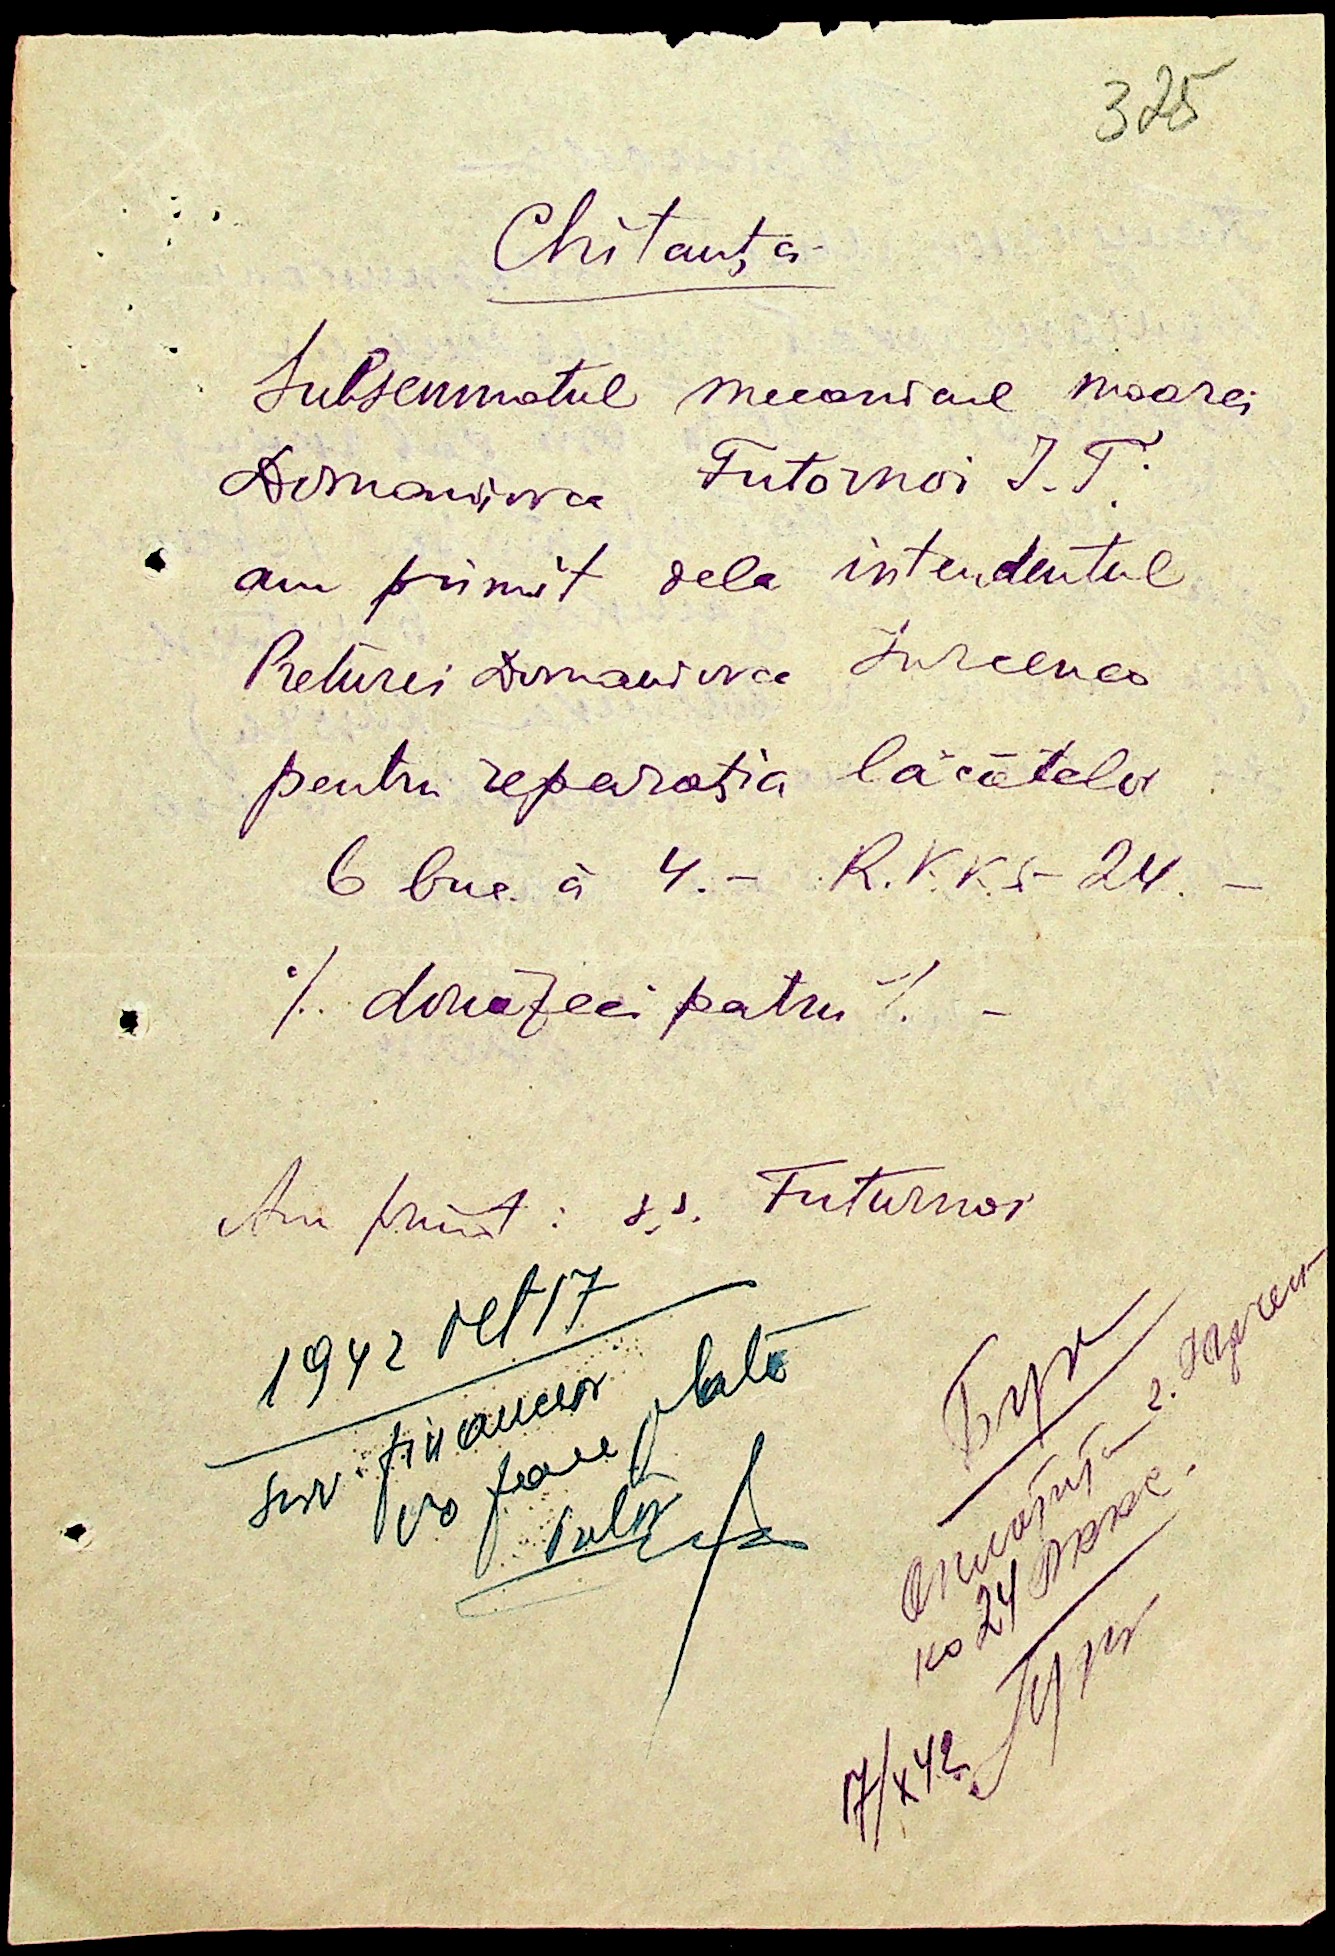 325
Chitanță
Subsemnatul mecanicul moarei
Domaniovca Futornoi I. T.
am primit dela intendentul
Preturei Domaniovca Iurcenco
pentru reparația lăcătelor
6 buc. à 4.- R.K.K.S- 24.-
./. douăzeci patru ./. -
Am primit: s.s. Futurnoi
1942 Oct 17
Serv. financiar
va face plata
Бух
Оплатить г. Юрчен
ко 24 РККС.
17/X 42